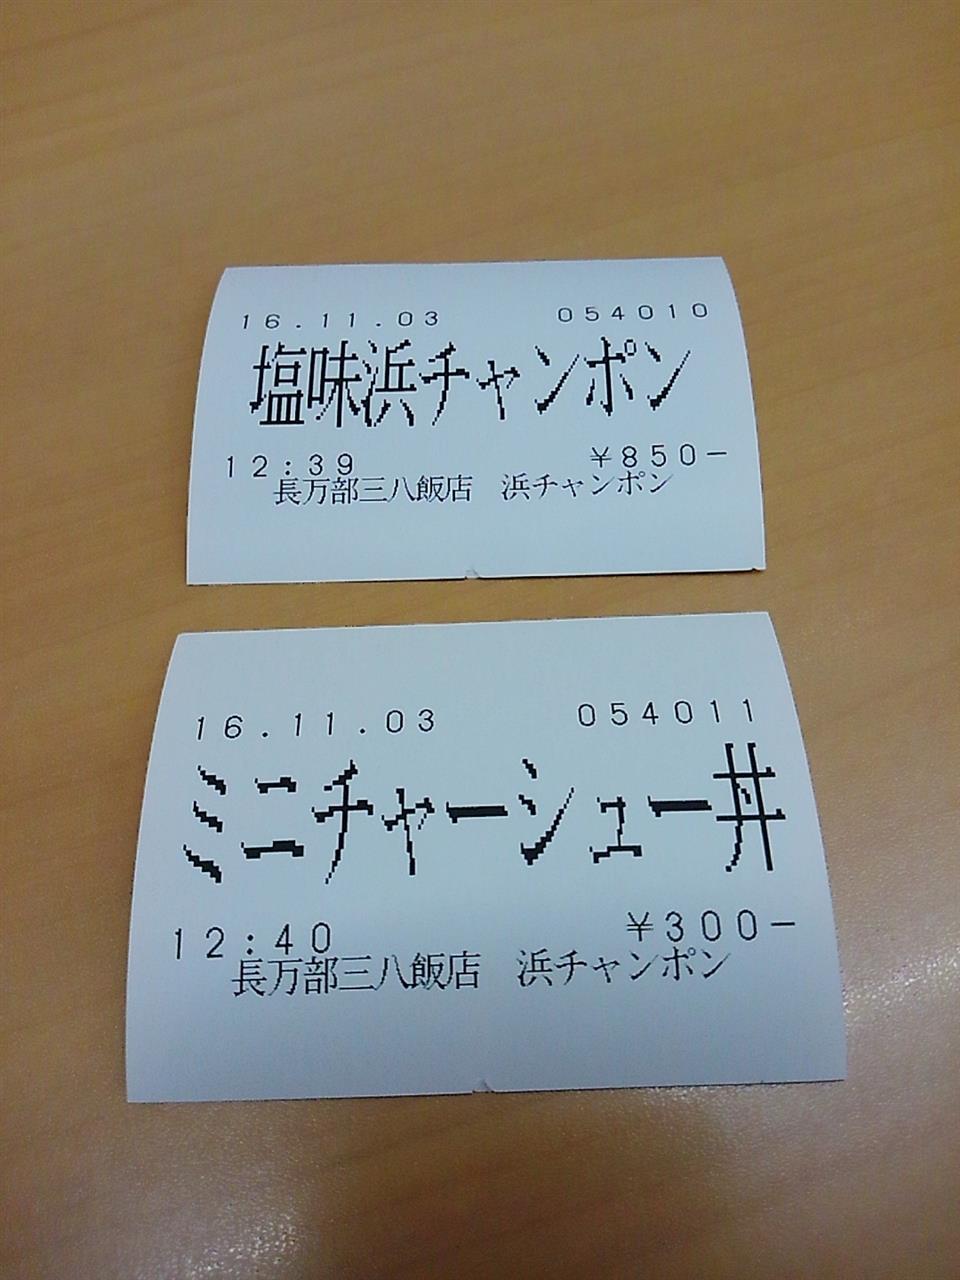 16.11.03 054010
塩味浜チャンポン
12:39 ¥850-
長万部三八飯店 浜チャンポン
16.11.03 054011
ミニチャーシュー丼
12:40 ¥300-
長万部三八飯店 浜チャンポン